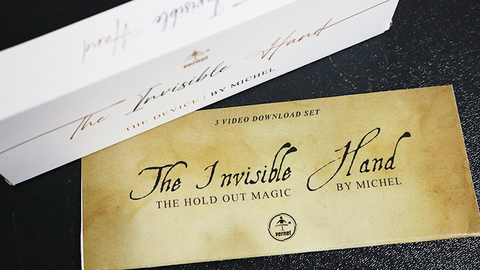 The Invisible Hand
vernet
The Invisible Hand
THE DEVICE | BY MICHEL
3 VIDEO DOWNLOAD SET
The Invisible Hand
THE HOLD OUT MAGIC BY MICHEL
vernet